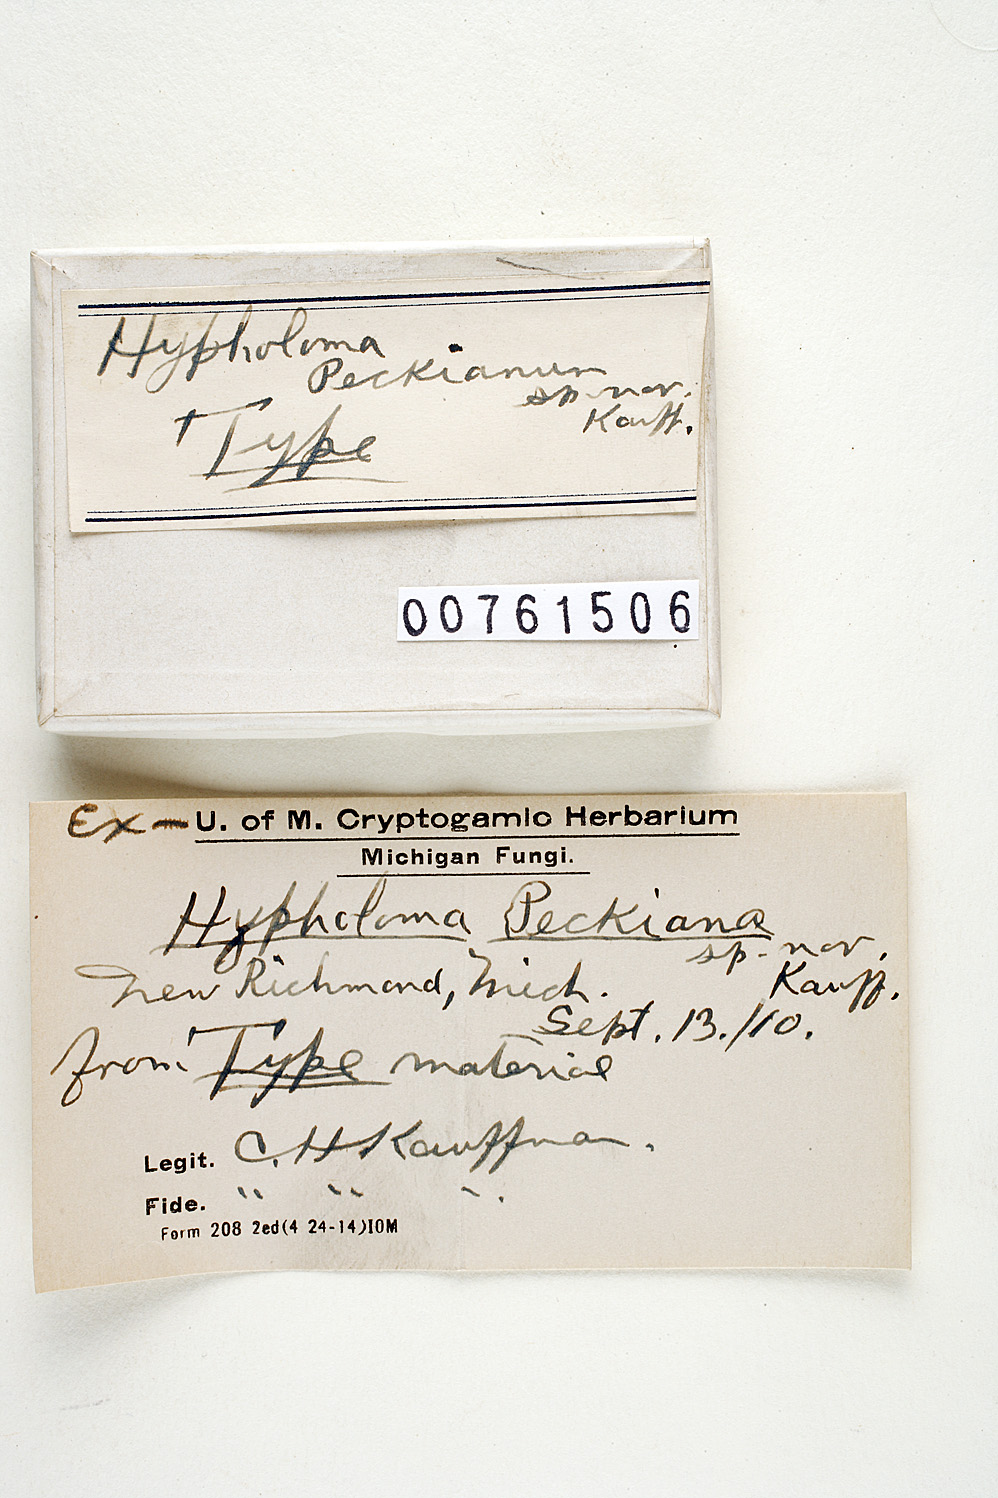 Hypholoma
Peckianum
sp. nov.
Kauff.
Type
00761506
Ex - U. of M. Cryptogamic Herbarium
Michigan Fungi.
Hypholoma Peckiana
sp. nov.
Kauff.
New Richmond, Mich.
Sept. 13./10.
from Type material
Legit. C. H. Kauffman.
Fide. " " " .
Form 208 2ed(4 24-14)10M